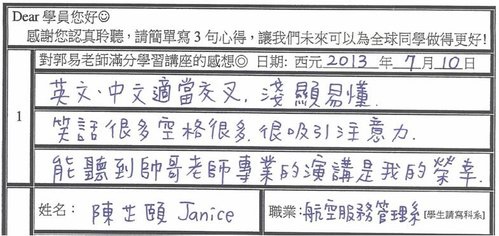 Dear 學員您好☺
感謝您認真聆聽，請簡單寫 3 句心得，讓我們未來可以為全球同學做得更好!
對郭易老師滿分學習講座的感想◎ 日期: 西元 2013 年 7 月 10 日
1
英文、中文適當交叉，淺顯易懂.
笑話很多空格很多.很吸引注意力.
能聽到帥哥老師專業的演講是我的榮幸.
姓名: 陳芷頤 Janice 職業: 航空服務管理系 [學生請寫科系]